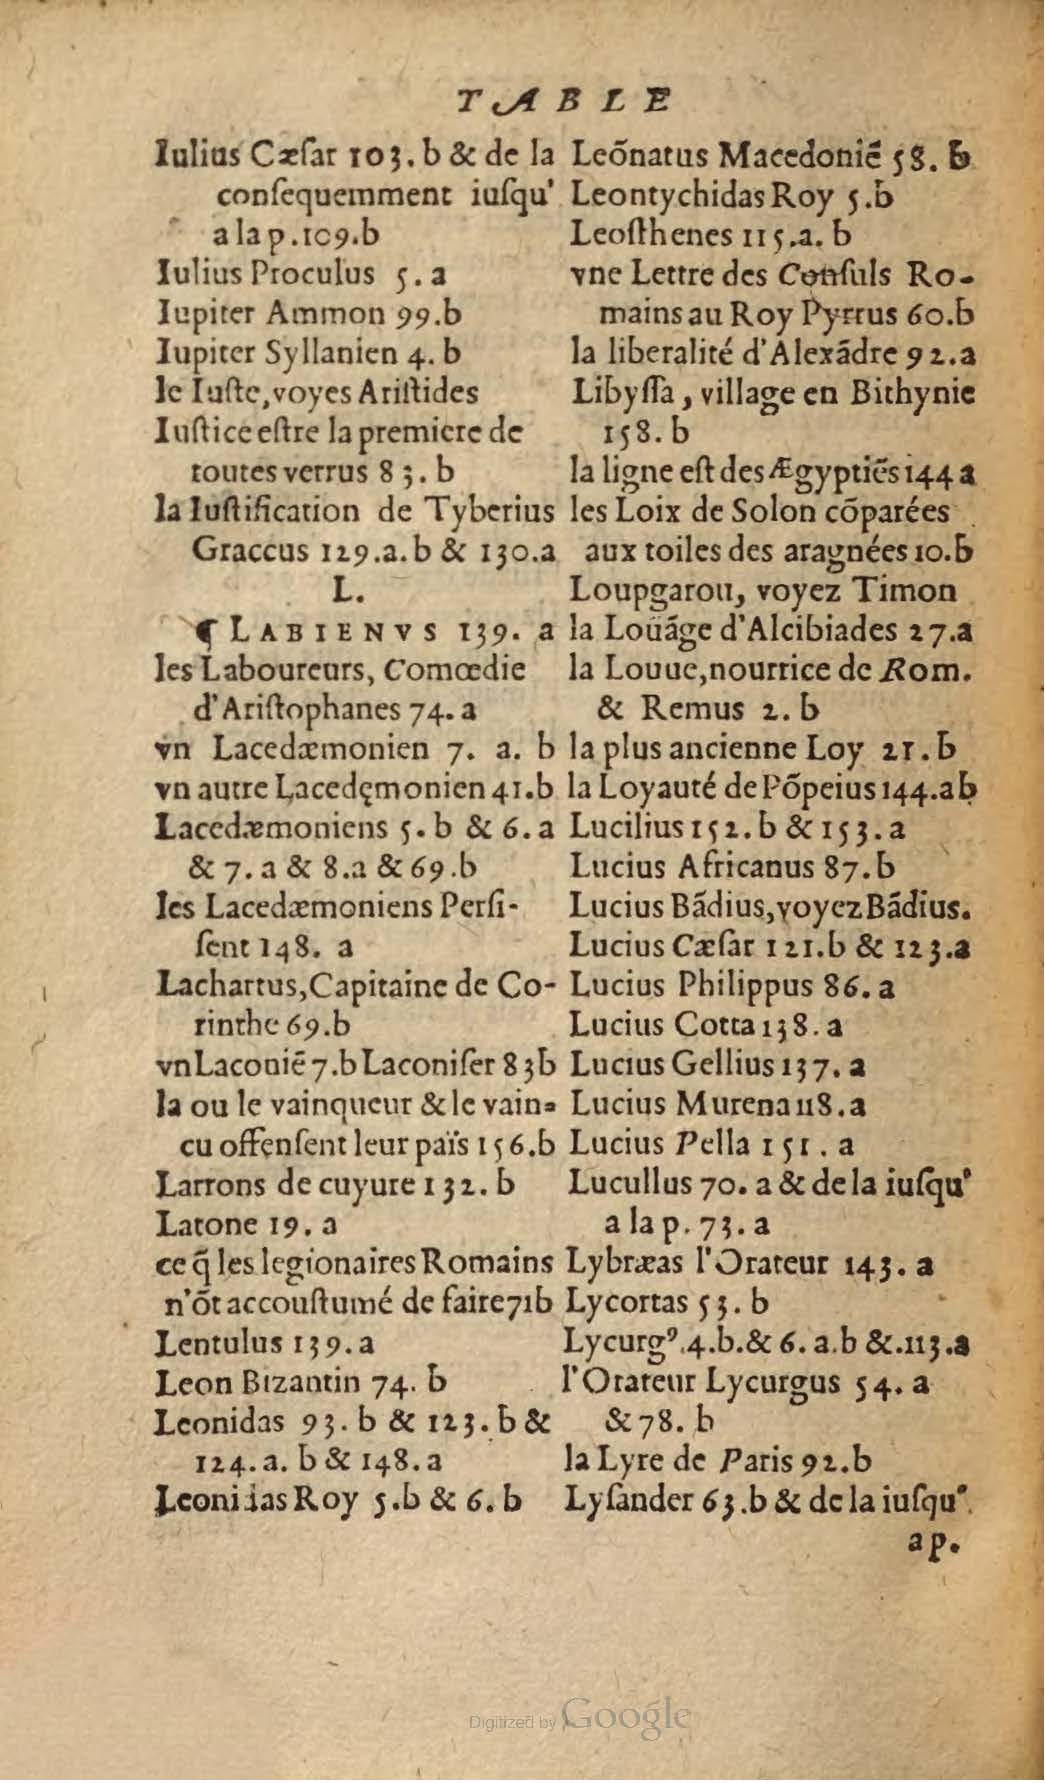 TABLE
Iulius Cæſar 103. b & de la
conſequemment iuſqu'
a la p. 109.b
Iulius Proculus 5. a
Iupiter Ammon 99.b
Iupiter Syllanien 4. b
le Iuſte, voyes Ariſtides
Iuſtice eſtre la premiere de
toutes vertus 83. b
la Iuſtification de Tyberius
Graccus 129.a. b & 130.a
L.
¶ LABIENVS 139. a
les Laboureurs, Comœdie
d'Ariſtophanes 74. a
vn Lacedæmonien 7. a. b
vn autre Lacedęmonien 41.b
Lacedæmoniens 5. b & 6. a
& 7. a & 8.a & 69.b
les Lacedæmoniens Perſi-
ſent 148. a
Lachartus, Capitaine de Co-
rinthe 69.b
vn Laconiẽ 7.b Laconiſer 83b
la ou le vainqueur & le vain-
cu offenſent leur païs 156.b
Larrons de cuyure 132. b
Latone 19. a
ce q̃ les legionaires Romains
n'õt accouſtumé de faire 71b
Lentulus 139. a
Leon Bizantin 74. b
Leonidas 93. b & 123. b &
124. a. b & 148. a
Leonidas Roy 5.b & 6. b
Leõnatus Macedoniẽ 58. b
Leontychidas Roy 5.b
Leoſthenes 115.a. b
vne Lettre des Conſuls Ro-
mains au Roy Pyrrus 60.b
la liberalité d'Alexãdre 92.a
Libyſſa, village en Bithynie
158. b
la ligne eſt des Ægyptiẽs 144 a
les Loix de Solon cõparées
aux toiles des aragnées 10.b
Loupgarou, voyez Timon
la Loüãge d'Alcibiades 27.a
la Louue, nourrice de Rom.
& Remus 2. b
la plus ancienne Loy 21. b
la Loyauté de Põpeius 144.ab
Lucilius 152. b & 153. a
Lucius Africanus 87. b
Lucius Bãdius, voyez Bãdius.
Lucius Cæſar 121.b & 123.a
Lucius Philippus 86. a
Lucius Cotta 138. a
Lucius Gellius 137. a
Lucius Murena 118.a
Lucius Pella 151. a
Lucullus 70. a & de la iuſqu'
a la p. 73. a
Lybræas l'Orateur 143. a
Lycortas 53. b
Lycurgꝰ .4.b.& 6. a.b &.113.a
l'Orateur Lycurgus 54. a
& 78. b
la Lyre de Paris 92.b
Lyſander 63.b & de la iuſqu'
a p.
Digitized by Google